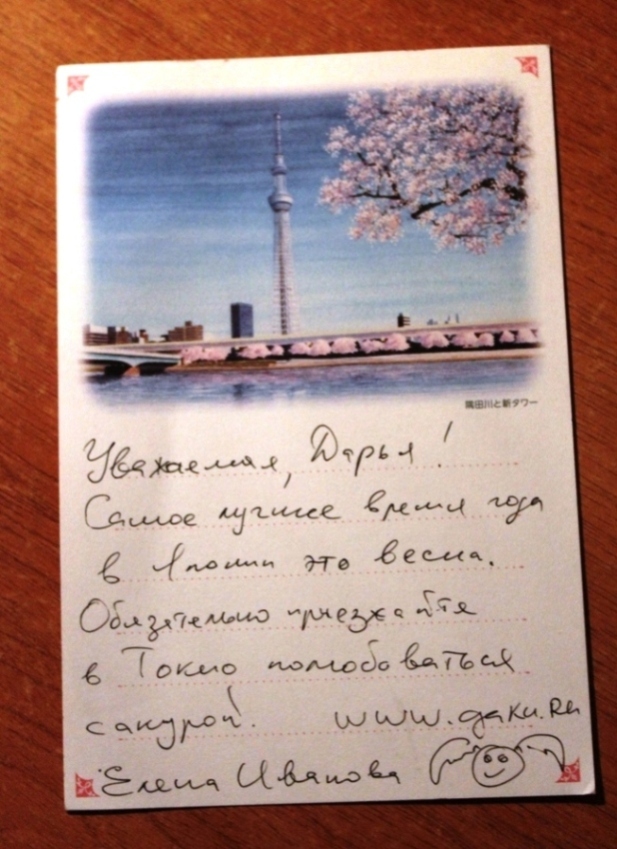 隅田川と新タワー
Уважаемая, Дарья!
Самое лучшее время года
в Японии это весна.
Обязательно приезжайте
в Токио полюбоваться
сакурой! www.gaku.ru
Елена Иванова